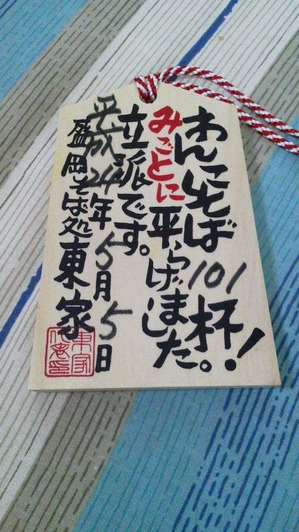 わんこそば101杯!
みごとに平らげました。
立派です。
平成24年5月5日
盛岡そば処 東家